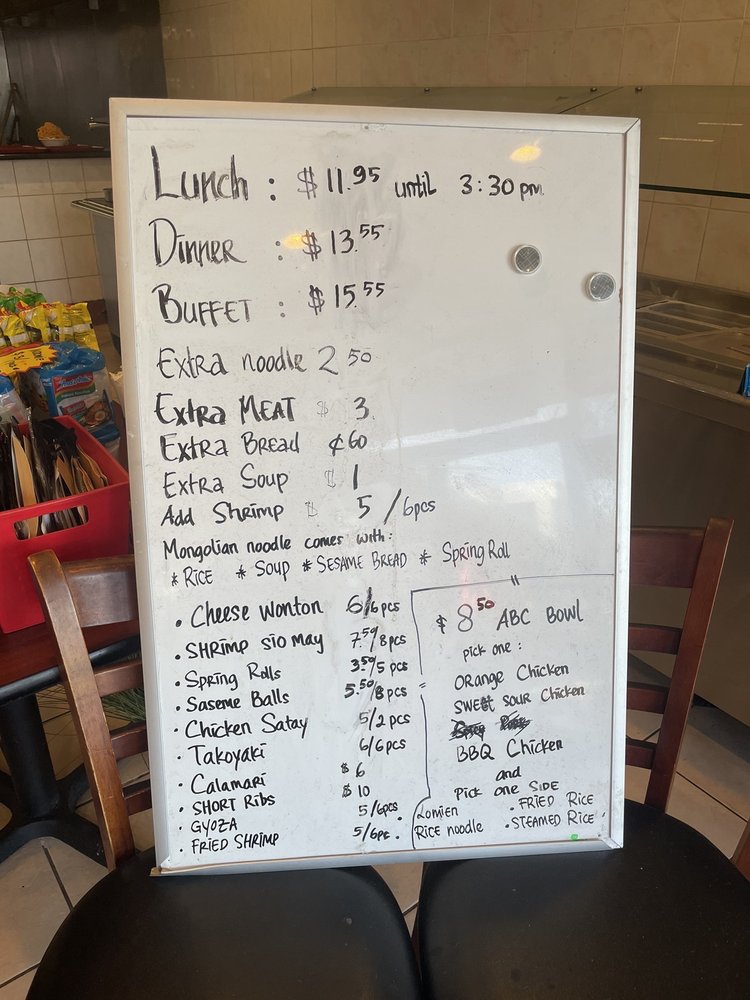 Lunch : $ 11.95 until 3:30 pm
Dinner : $ 13.55
BUFFET : $ 15.55
Extra noodle 2 50
Extra MEAT $ 3
Extra Bread ¢60
Extra Soup $ 1
Add Shrimp $ 5 /6pcs
Mongolian noodle comes with:
* RICE * SOUP * SESAME BREAD * Spring Roll
• Cheese Wonton 6/6pcs
• SHRIMP SIO MAY 7.50/8pcs
• Spring Rolls 3.50/5 pcs
• Saseme Balls 5.50/8pcs
• Chicken Satay 5/2 pcs
• Takoyaki 6/6pcs
• Calamari $ 6
• SHORT Ribs $ 10
• GYOZA 5/6pcs
• FRIED SHRIMP 5/6pc.
$ 8 50 ABC BOWL
pick one :
Orange Chicken
SWEET SOUR Chicken
BBQ Chicken
and
Pick one SIDE
Lomien • FRIED Rice
Rice noodle • STEAMED Rice